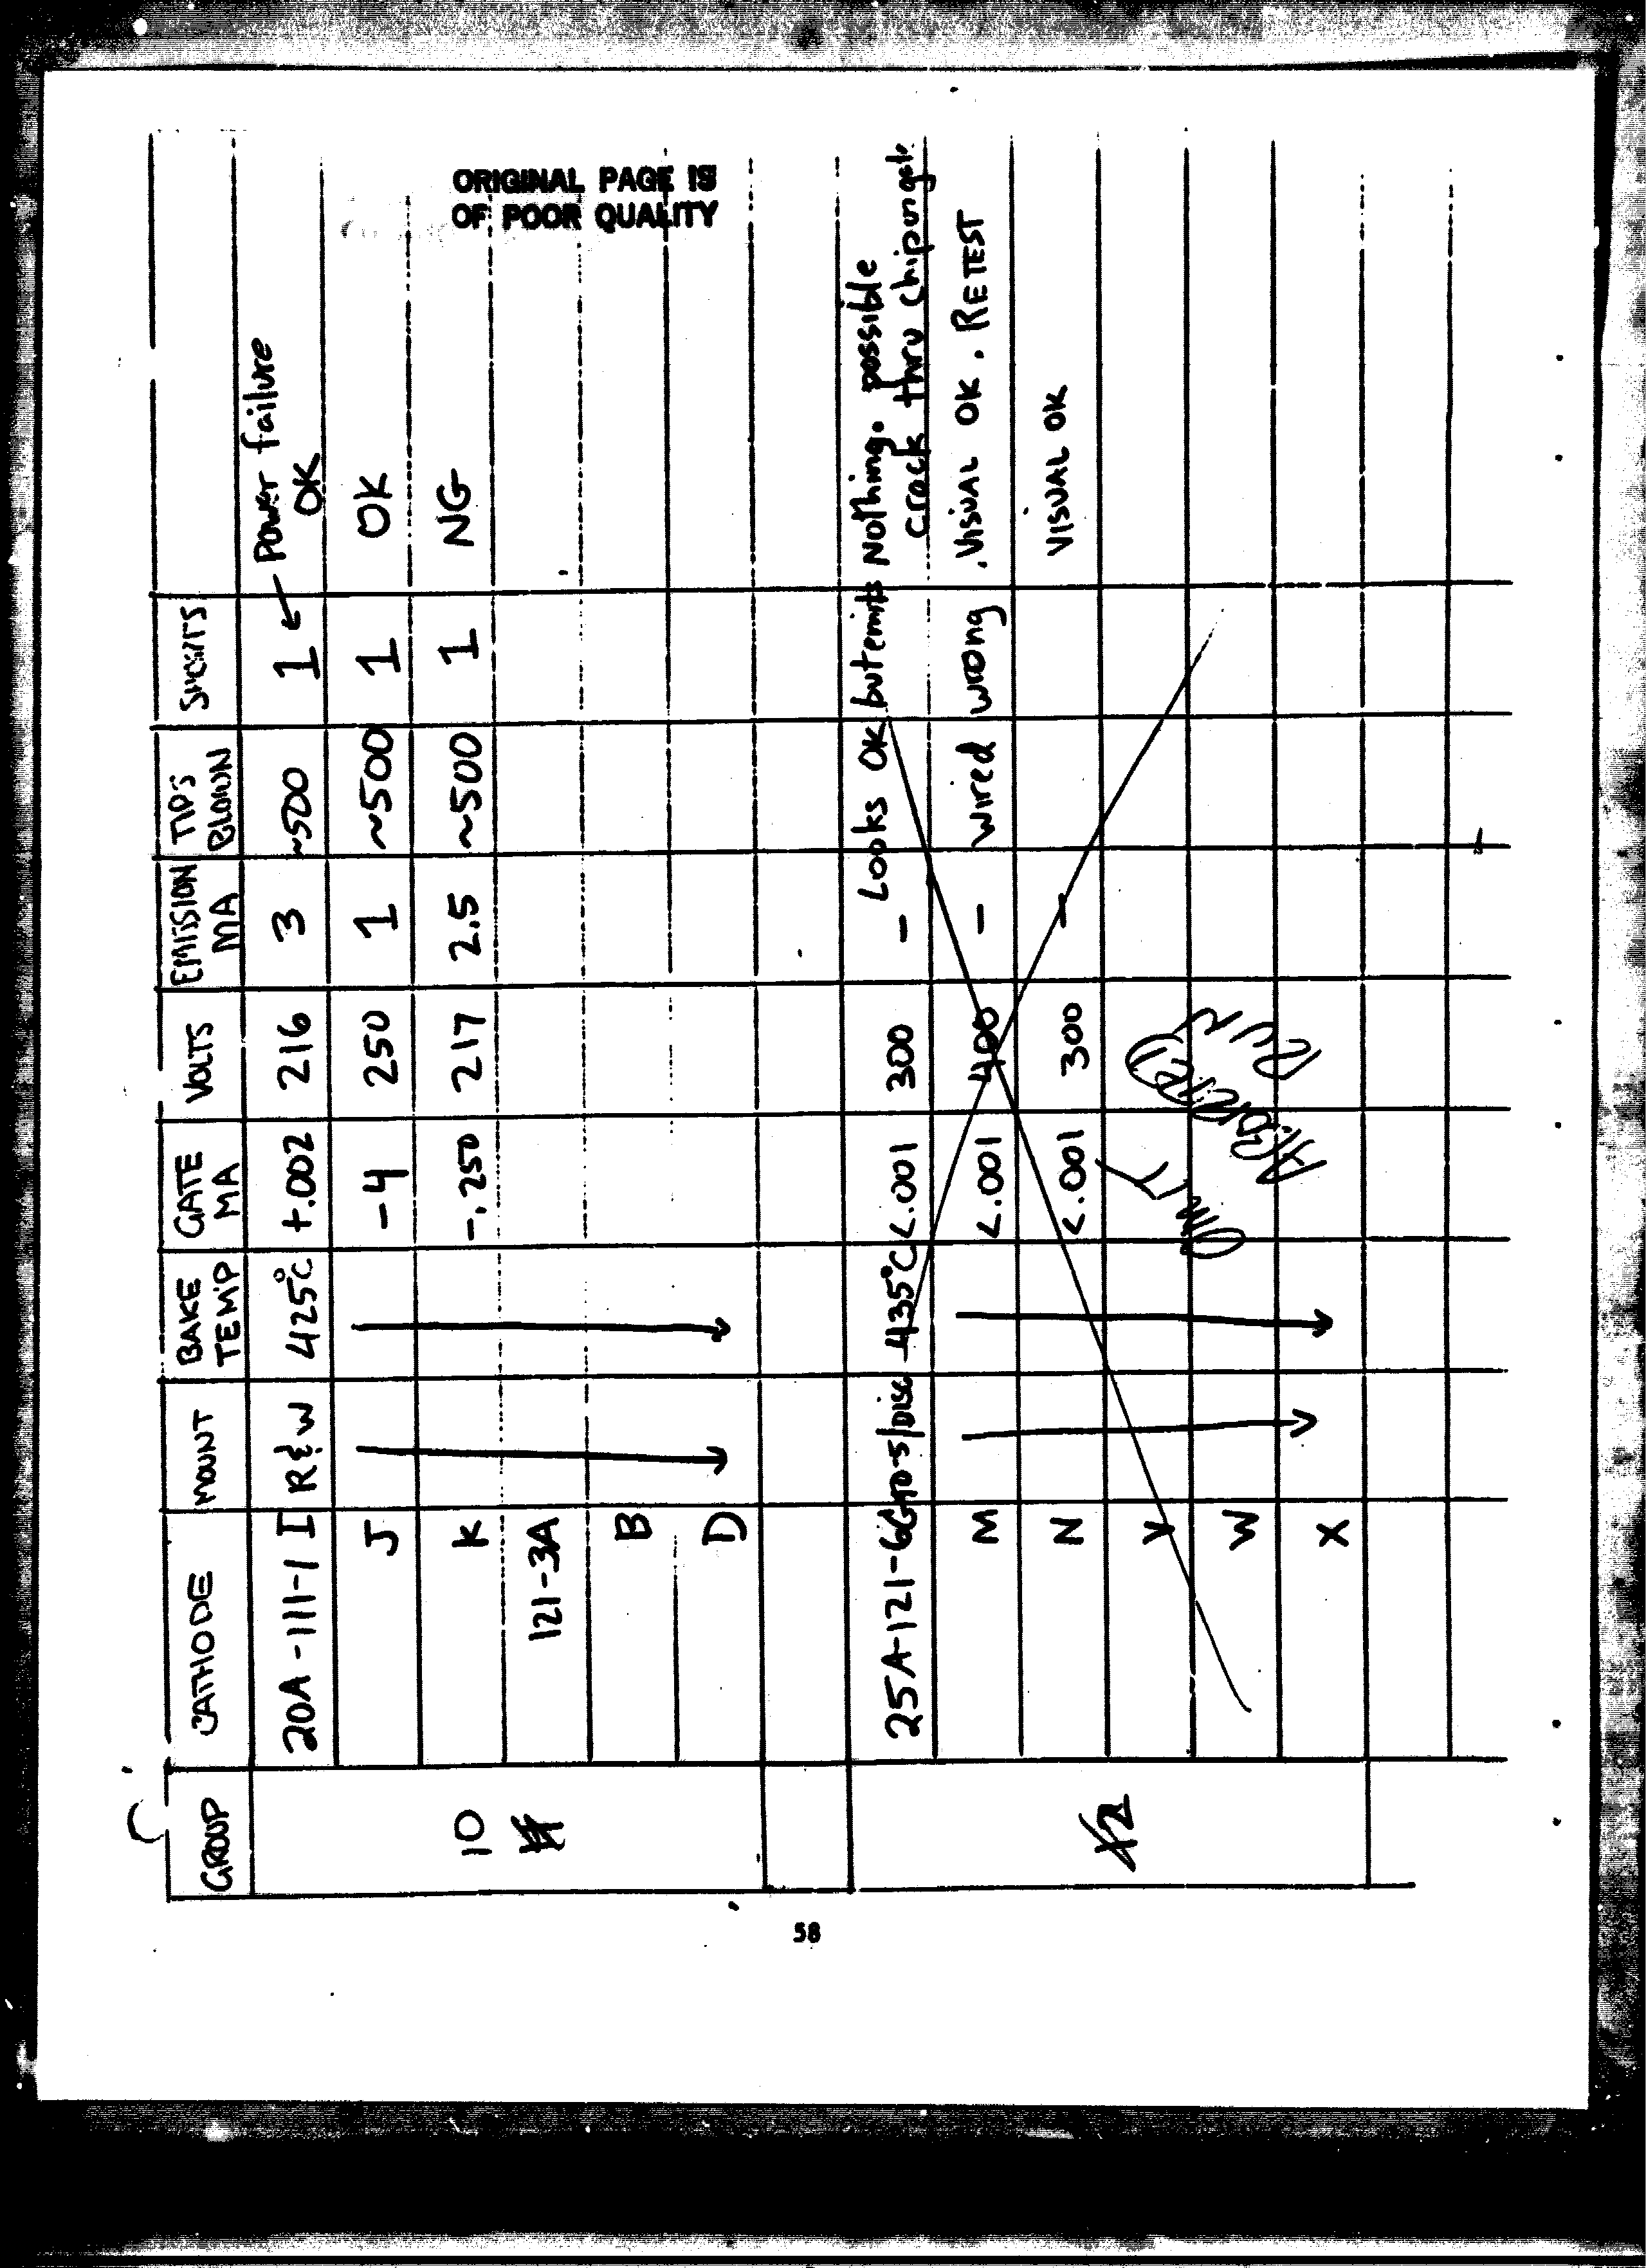 ORIGINAL PAGE IS
OF POOR QUALITY
GROUP CATHODE MOUNT BAKE TEMP GATE MA VOLTS EMISSION MA TIPS BLOWN SHORTS
10
20A-111-1 I R&W 425°C +.002 216 3 ~500 1 ← Power failure OK
J -4 250 1 ~500 1 OK
K -.250 217 2.5 ~500 1 NG
121-3A
B
D
25A-121-6G 435°C <.001 300 - Looks OK but emits Nothing. possible
crack thru chip
M <.001 400 - wired wrong . VISUAL OK. RETEST
N <.001 300 - VISUAL OK
V
W
X
58